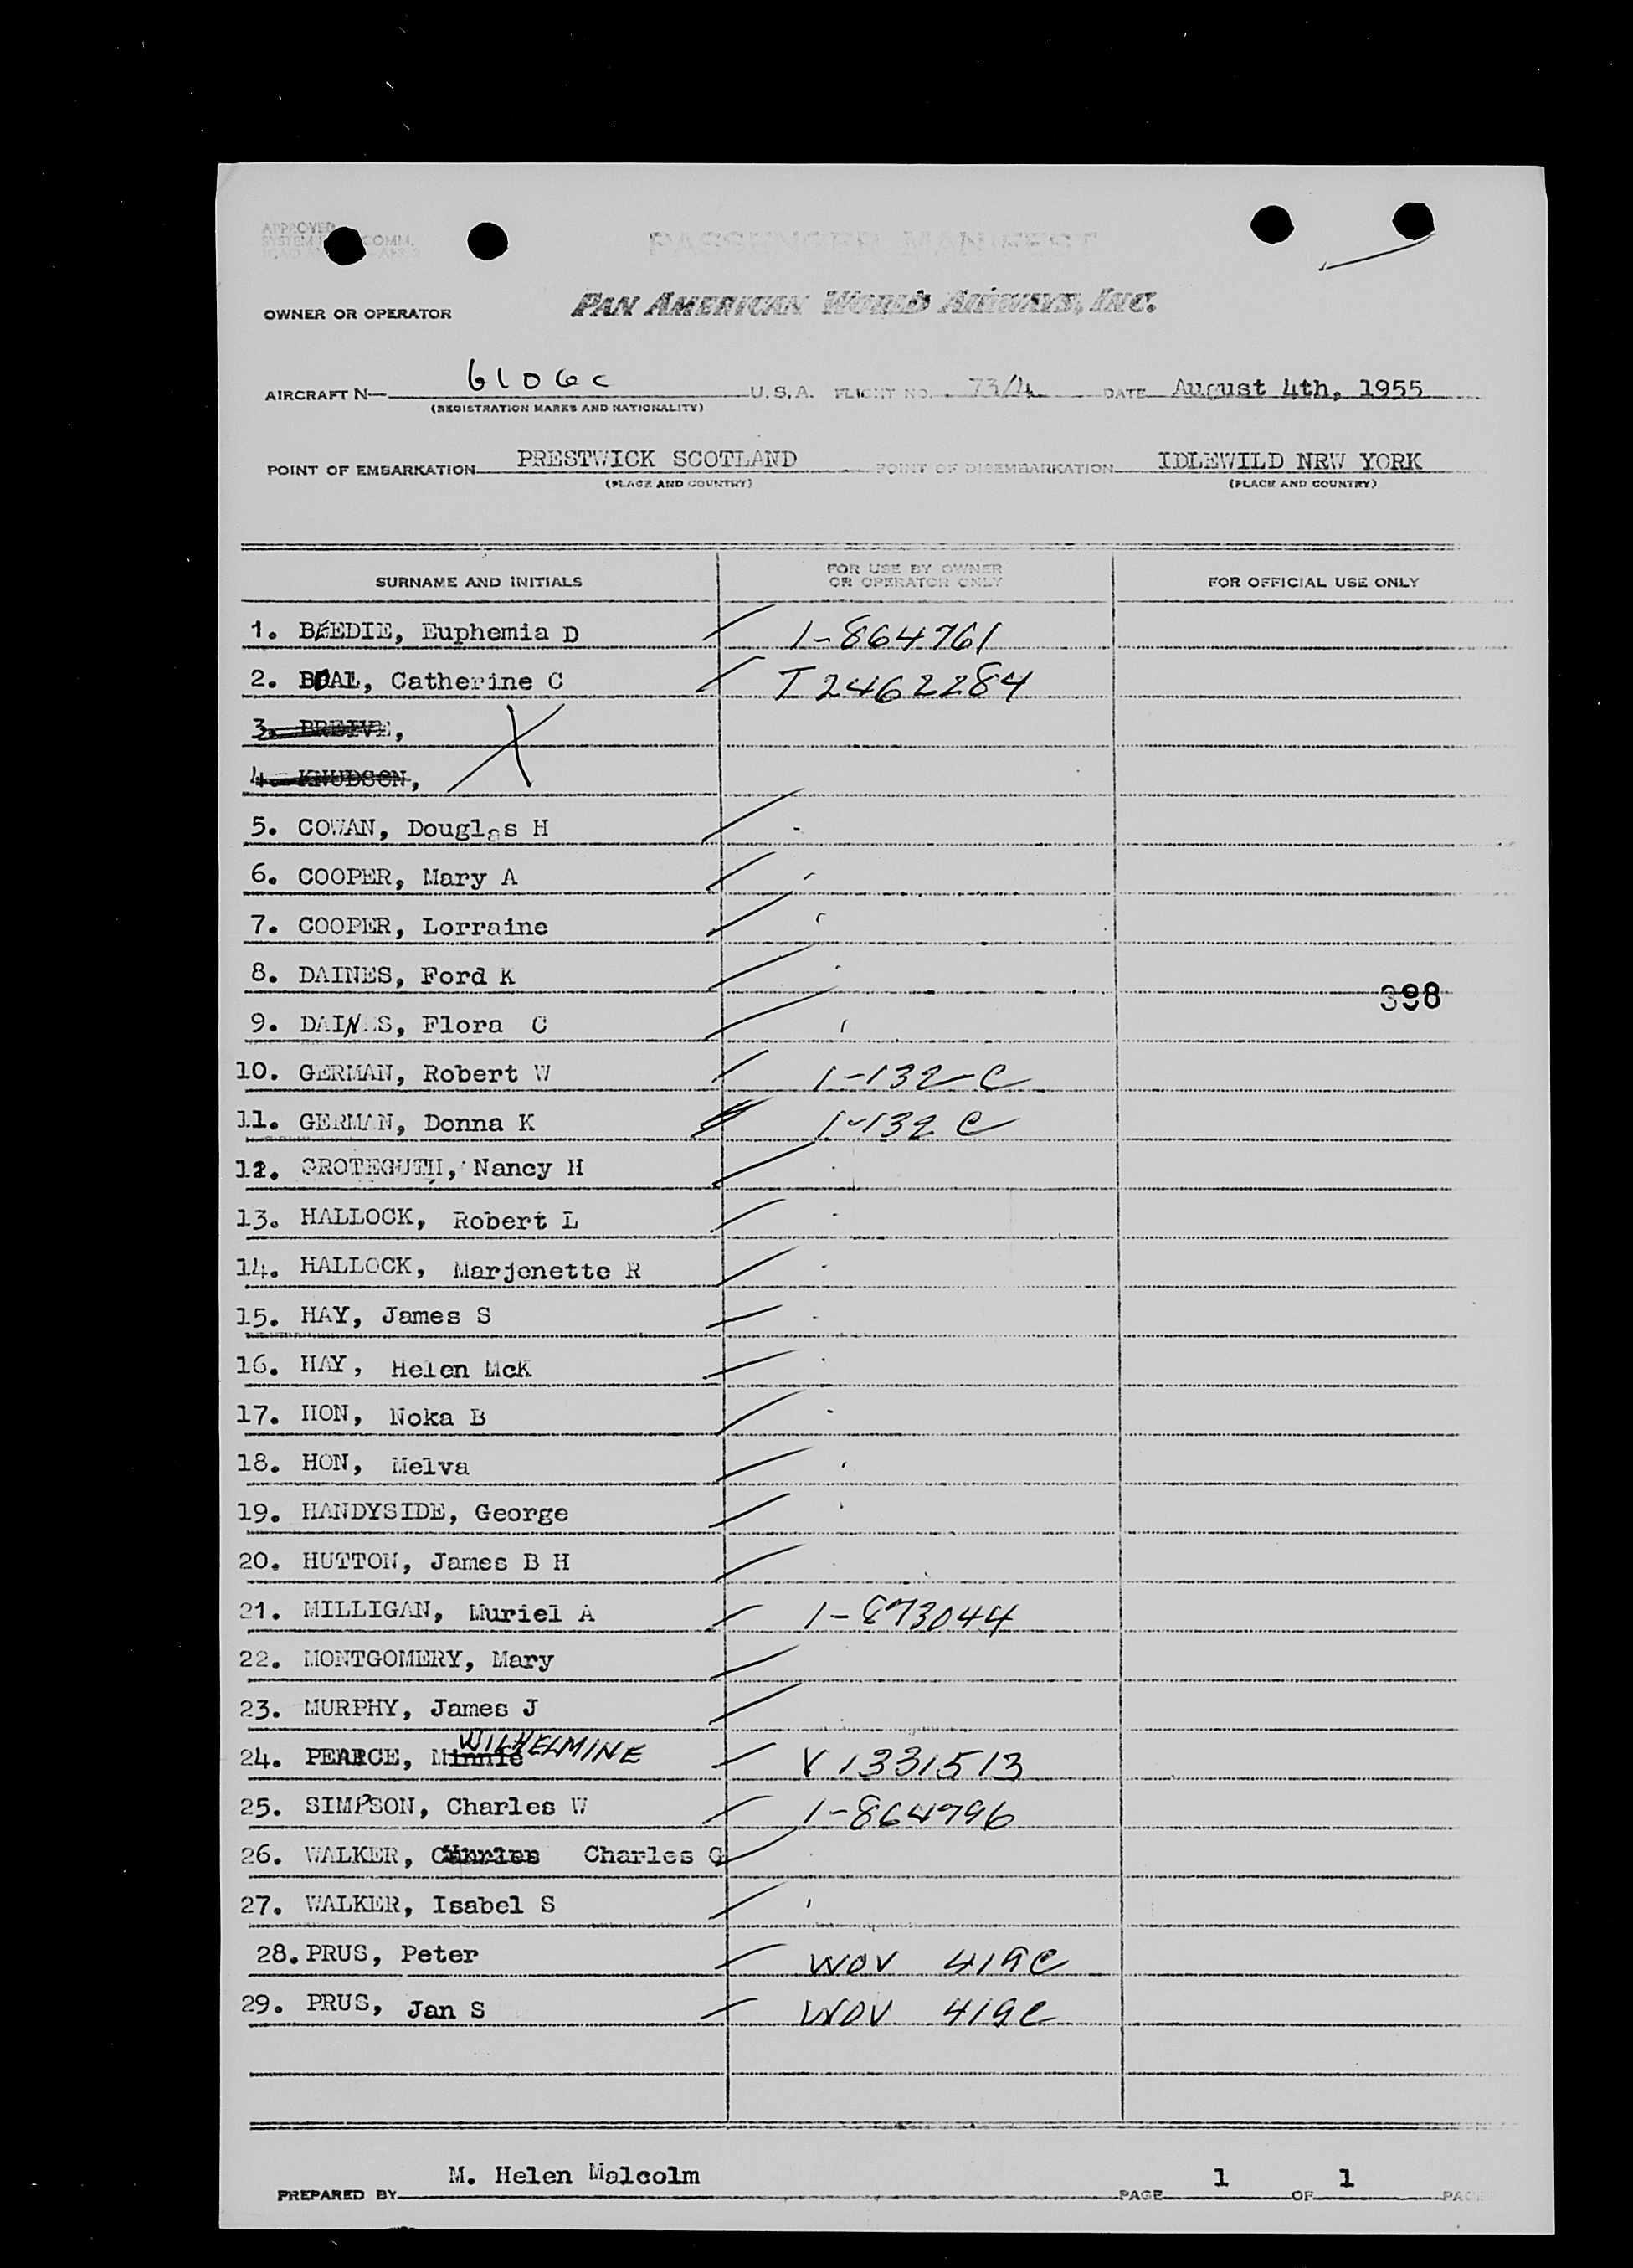 APPROVED
SYSTEM COMM.
PASSENGER MANIFEST
OWNER OR OPERATOR PAN AMERICAN WORLD AIRWAYS, INC.
AIRCRAFT N— U.S.A. FLIGHT NO. 73/4 DATE August 4th, 1955
(REGISTRATION MARKS AND NATIONALITY)
POINT OF EMBARKATION PRESTWICK SCOTLAND POINT OF DISEMBARKATION IDLEWILD NRW YORK
(PLACE AND COUNTRY) (PLACE AND COUNTRY)
SURNAME AND INITIALS FOR USE BY OWNER OR OPERATOR ONLY FOR OFFICIAL USE ONLY
1. BEEDIE, Euphemia D 1-864761
2. BOAL, Catherine C T 2462284
3. BREIVE,
4. KNUDSON,
5. COWAN, Douglas H
6. COOPER, Mary A
7. COOPER, Lorraine
8. DAINES, Ford K
398
9. DAINES, Flora C
10. GERMAN, Robert W 1-132-C
11. GERMAN, Donna K 1-132 C
12. GROTEGUTH, Nancy H
13. HALLOCK, Robert L
14. HALLOCK, Marjenette R
15. HAY, James S
16. HAY, Helen McK
17. HON, Noka B
18. HON, Melva
19. HANDYSIDE, George
20. HUTTON, James B H
21. MILLIGAN, Muriel A 1-873044
22. MONTGOMERY, Mary
23. MURPHY, James J
24. PEARCE, Minnie WILHELMINE V 1331513
25. SIMPSON, Charles W 1-864796
26. WALKER, Charles Charles G
27. WALKER, Isabel S
28. PRUS, Peter WOV 419C
29. PRUS, Jan S WOV 419C
PREPARED BY M. Helen Malcolm PAGE 1 OF 1 PAGES